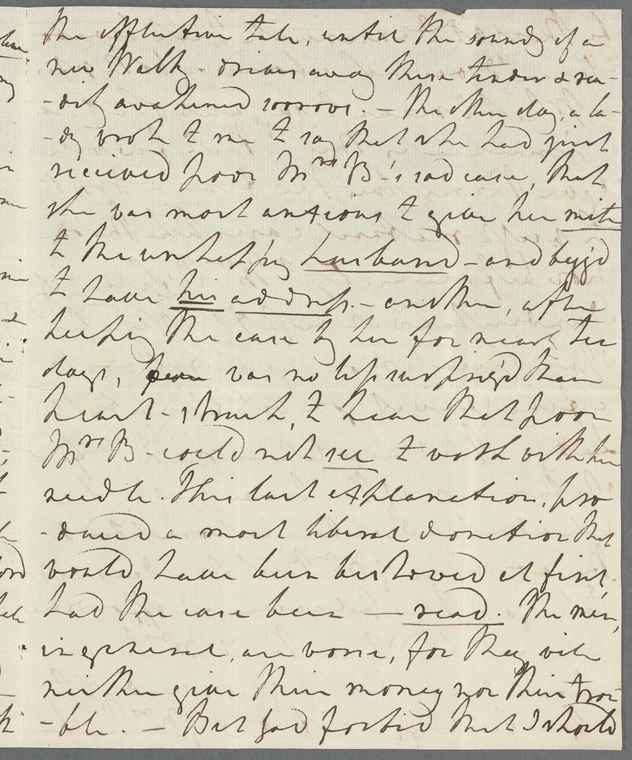 the afflictive tale, until the sound of a
new Walk - drives away these tender & rea-
-dily awakened sorrows. - The other day a la-
-dy wrote to me to say that she had just
received poor Mrs B-'s sad case, that
she was most anxious to give her mite
to the unhappy husband - and begg'd
to have his address. - another, after
keeping the case by her for near ten
days, was no less surprized than
heart-struck, to hear that poor
Mrs B- could not see to work with her
needle. This last explanation, pro
-duced a most liberal donation that
would have been bestowed at first,
had the case been - read. The men,
in general, are worse, for they will
neither give their money nor their trou-
-ble. - But God forbid that I should